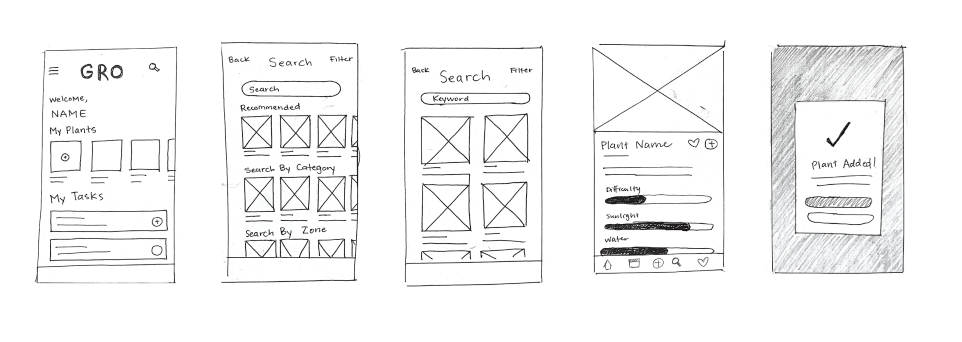 GRO
Welcome,
NAME
My Plants
My Tasks
Back Search Filter
Search
Recommended
Search By Category
Search By Zone
Back Search Filter
Keyword
Plant Name
Difficulty
Sunlight
Water
Plant Added!